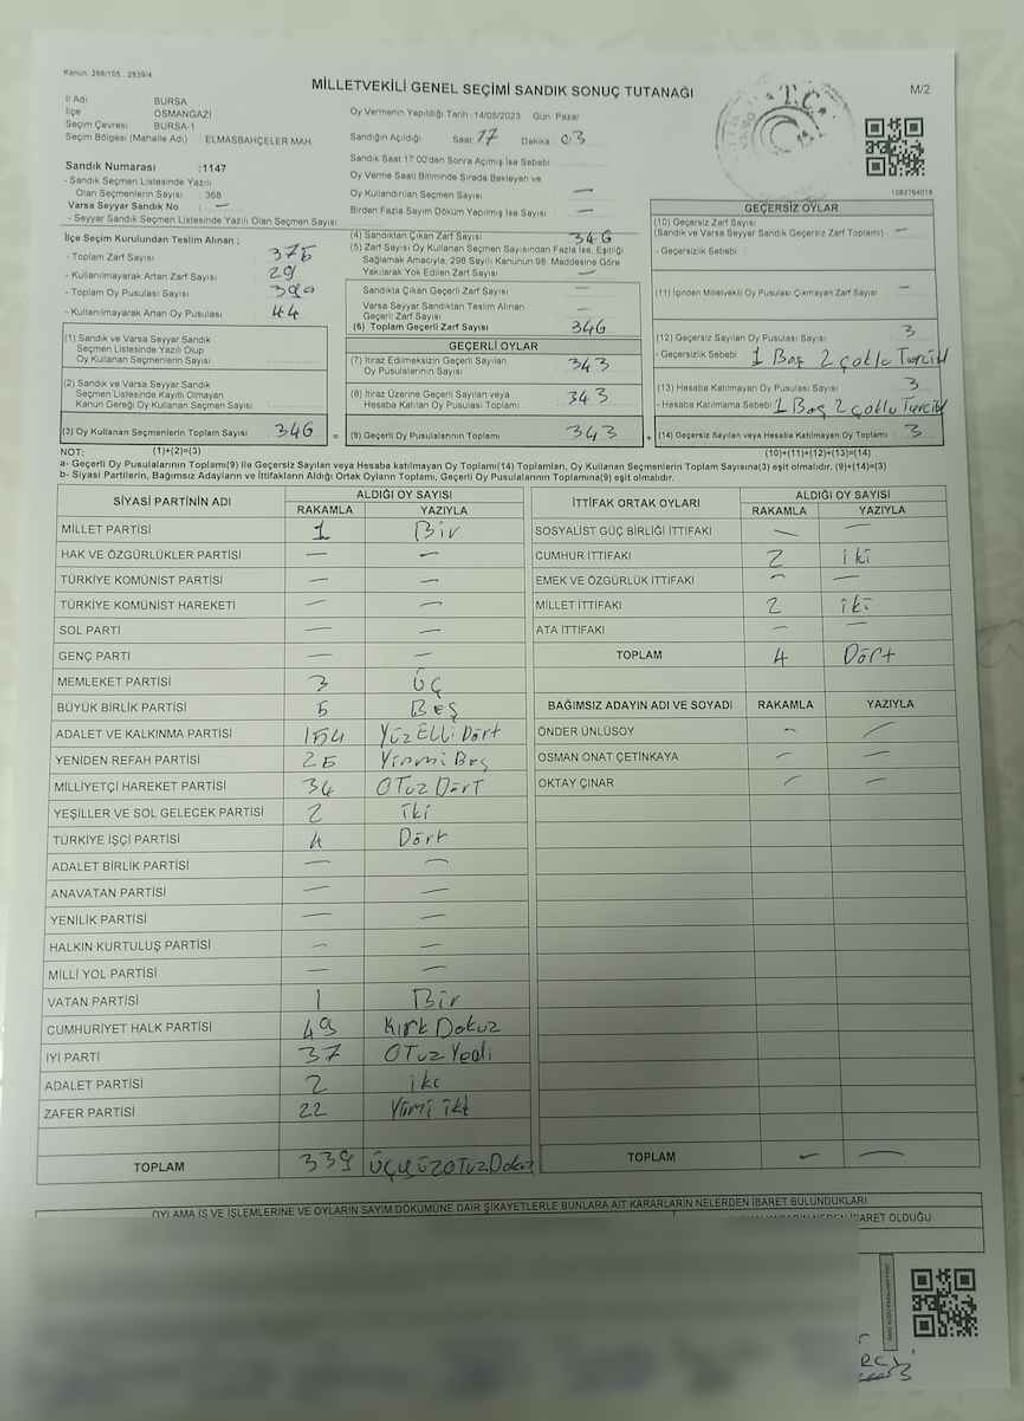 Kanun: 298/105 , 2839/4
MİLLETVEKİLİ GENEL SEÇİMİ SANDIK SONUÇ TUTANAĞI
M/2
İl Adı BURSA
İlçe OSMANGAZİ
Seçim Çevresi BURSA-1
Seçim Bölgesi (Mahalle Adı) ELMASBAHÇELER MAH.
Sandık Numarası :1147
- Sandık Seçmen Listesinde Yazılı
Olan Seçmenlerin Sayısı : 368
Varsa Seyyar Sandık No : —
- Seyyar Sandık Seçmen Listesinde Yazılı Olan Seçmen Sayısı
Oy Vermenin Yapıldığı Tarih :14/05/2023 Gün: Pazar
Sandığın Açıldığı Saat 17 Dakika 03
Sandık Saat 17:00'dan Sonra Açılmış İse Sebebi
Oy Verme Saati Bitiminde Sırada Bekleyen ve
Oy Kullandırılan Seçmen Sayısı —
Birden Fazla Sayım Döküm Yapılmış İse Sayısı —
T.C.
İlçe Seçim Kurulundan Teslim Alınan ;
- Toplam Zarf Sayısı 375
- Kullanılmayarak Artan Zarf Sayısı 29
- Toplam Oy Pusulası Sayısı 390
- Kullanılmayarak Artan Oy Pusulası 44
(1) Sandık ve Varsa Seyyar Sandık
Seçmen Listesinde Yazılı Olup
Oy Kullanan Seçmenlerin Sayısı
(2) Sandık ve Varsa Seyyar Sandık
Seçmen Listesinde Kayıtlı Olmayan
Kanun Gereği Oy Kullanan Seçmen Sayısı
(3) Oy Kullanan Seçmenlerin Toplam Sayısı 346 =
(4) Sandıktan Çıkan Zarf Sayısı 346
(5) Zarf Sayısı Oy Kullanan Seçmen Sayısından Fazla İse, Eşitliği
Sağlamak Amacıyla, 298 Sayılı Kanunun 98. Maddesine Göre
Yakılarak Yok Edilen Zarf Sayısı —
Sandıkta Çıkan Geçerli Zarf Sayısı —
Varsa Seyyar Sandıktan Teslim Alınan
Geçerli Zarf Sayısı —
(6) Toplam Geçerli Zarf Sayısı 346
GEÇERLİ OYLAR
(7) İtiraz Edilmeksizin Geçerli Sayılan
Oy Pusulalarının Sayısı 343
(8) İtiraz Üzerine Geçerli Sayılan veya
Hesaba Katılan Oy Pusulası Toplamı 343
(9) Geçerli Oy Pusulalarının Toplamı 343 +
GEÇERSİZ OYLAR
(10) Geçersiz Zarf Sayısı
(Sandık ve Varsa Seyyar Sandık Geçersiz Zarf Toplamı) —
- Geçersizlik Sebebi
(11) İçinden Milletvekili Oy Pusulası Çıkmayan Zarf Sayısı —
(12) Geçersiz Sayılan Oy Pusulası Sayısı 3
- Geçersizlik Sebebi 1 Boş 2 çoklu Tercih
(13) Hesaba Katılmayan Oy Pusulası Sayısı 3
- Hesaba Katılmama Sebebi 1 Boş 2 çoklu Tercih
(14) Geçersiz Sayılan veya Hesaba Katılmayan Oy Toplamı 3
NOT: (1)+(2)=(3) (10)+(11)+(12)+(13)=(14)
a- Geçerli Oy Pusulalarının Toplamı(9) ile Geçersiz Sayılan veya Hesaba katılmayan Oy Toplamı(14) Toplamları, Oy Kullanan Seçmenlerin Toplam Sayısına(3) eşit olmalıdır. (9)+(14)=(3)
b- Siyasi Partilerin, Bağımsız Adayların ve İttifakların Aldığı Ortak Oyların Toplamı, Geçerli Oy Pusulalarının Toplamına(9) eşit olmalıdır.
SİYASİ PARTİNİN ADI ALDIĞI OY SAYISI
RAKAMLA YAZIYLA
MİLLET PARTİSİ 1 Bir
HAK VE ÖZGÜRLÜKLER PARTİSİ — —
TÜRKİYE KOMÜNİST PARTİSİ — —
TÜRKİYE KOMÜNİST HAREKETİ — —
SOL PARTİ — —
GENÇ PARTİ — —
MEMLEKET PARTİSİ 3 Üç
BÜYÜK BİRLİK PARTİSİ 5 Beş
ADALET VE KALKINMA PARTİSİ 154 Yüz Elli Dört
YENİDEN REFAH PARTİSİ 25 Yirmi Beş
MİLLİYETÇİ HAREKET PARTİSİ 34 OTuz Dört
YEŞİLLER VE SOL GELECEK PARTİSİ 2 iki
TÜRKİYE İŞÇİ PARTİSİ 4 Dört
ADALET BİRLİK PARTİSİ — —
ANAVATAN PARTİSİ — —
YENİLİK PARTİSİ — —
HALKIN KURTULUŞ PARTİSİ — —
MİLLİ YOL PARTİSİ — —
VATAN PARTİSİ 1 Bir
CUMHURİYET HALK PARTİSİ 49 Kırk Dokuz
İYİ PARTİ 37 OTuz Yedi
ADALET PARTİSİ 2 iki
ZAFER PARTİSİ 22 Yirmi iki
TOPLAM 339 ÜçyüzOTuzDokuz
İTTİFAK ORTAK OYLARI ALDIĞI OY SAYISI
RAKAMLA YAZIYLA
SOSYALİST GÜÇ BİRLİĞİ İTTİFAKI — —
CUMHUR İTTİFAKI 2 iki
EMEK VE ÖZGÜRLÜK İTTİFAKI — —
MİLLET İTTİFAKI 2 iki
ATA İTTİFAKI — —
TOPLAM 4 Dört
BAĞIMSIZ ADAYIN ADI VE SOYADI RAKAMLA YAZIYLA
ÖNDER ÜNLÜSOY — —
OSMAN ONAT ÇETİNKAYA — —
OKTAY ÇINAR — —
TOPLAM — —
OYLAMA İŞ VE İŞLEMLERİNE VE OYLARIN SAYIM DÖKÜMÜNE DAİR ŞİKAYETLERLE BUNLARA AİT KARARLARIN NELERDEN İBARET BULUNDUKLARI
İBARET OLDUĞU